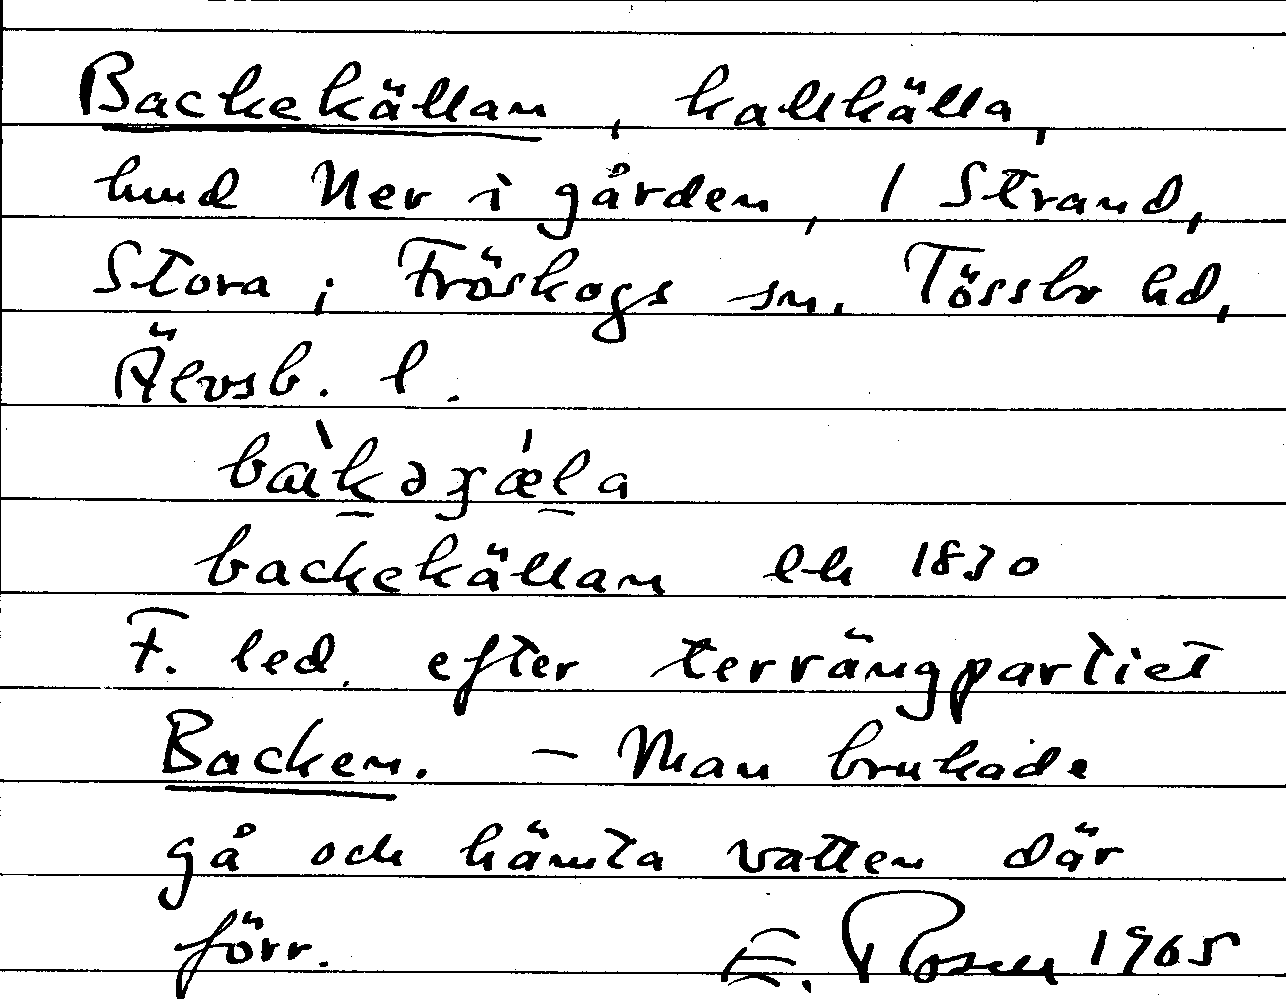 Backekällan, kallkälla,
hmd Ner i gården, 1 Strand,
Stora i Fröskogs sn. Tössbo hd,
Älvsb. l.
backekällan lh 1830
F. led. efter terrängpartiet
Backen. – Man brukade
gå och hämta vatten där
förr. E. Rosen 1965